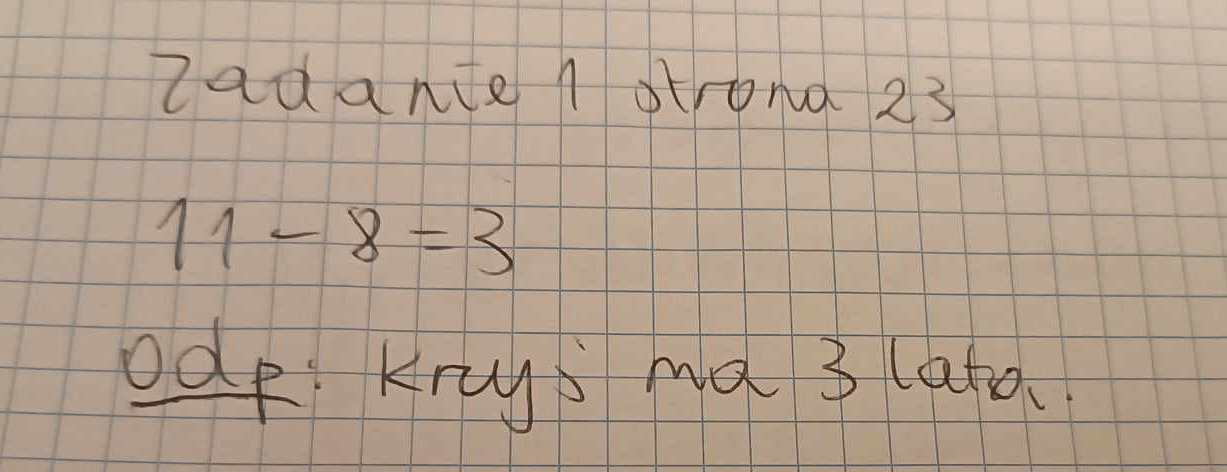 Zadanie 1 strona 23
11 - 8 = 3
Odp: Krzyś ma 3 lata.